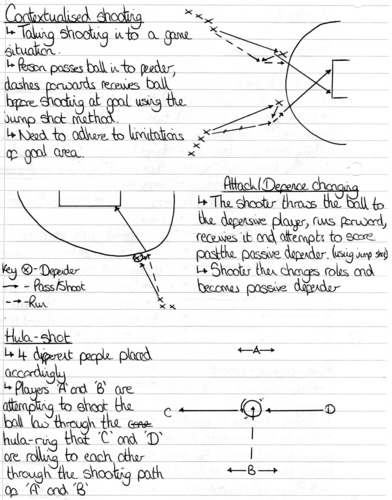 Contextualised shooting
↳ Taking shooting in to a game
situation.
↳ Person passes ball in to feeder,
dashes forwards receives ball
before shooting at goal using the
jump shot method.
↳ Need to adhere to limitations
of goal area.
Attack/Defence changing
↳ The shooter throws the ball to
the defensive player, runs forward,
receives it and attempts to score
past the passive defender. (using jump shot)
↳ Shooter then changes roles and
becomes passive defender
Key ⊗ - Defender
→ - Pass/shoot
--→ - Run
Hula-shot
↳ 4 different people placed
accordingly
↳ Players 'A' and 'B' are
attempting to shoot the
ball low through the
hula-ring that 'C' and 'D'
are rolling to each other
through the shooting path
of 'A' and 'B'
A
C
D
B